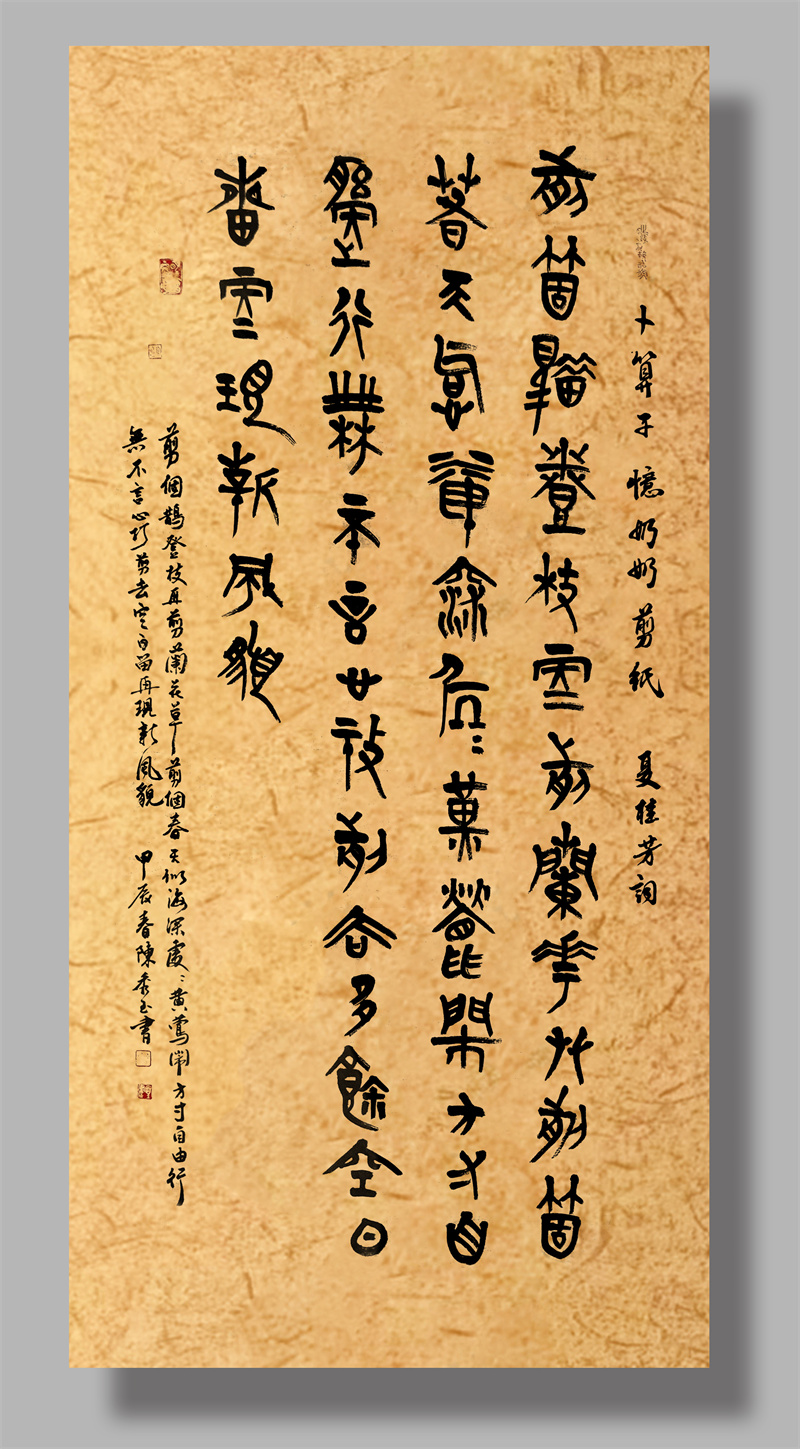 卜算子 憶奶奶剪紙 夏桂芳詞
剪箇鵲登枝再剪蘭花艸剪箇
春天似海深處〻黃鶯鬧方寸自
由行無不言心巧剪去多餘空白
留再現新風貌
剪個鵲登枝再剪蘭花草剪個春天似海深處〻黃鶯鬧方寸自由行
無不言心巧剪去空白留再現新風貌 甲辰春陳秀玉書